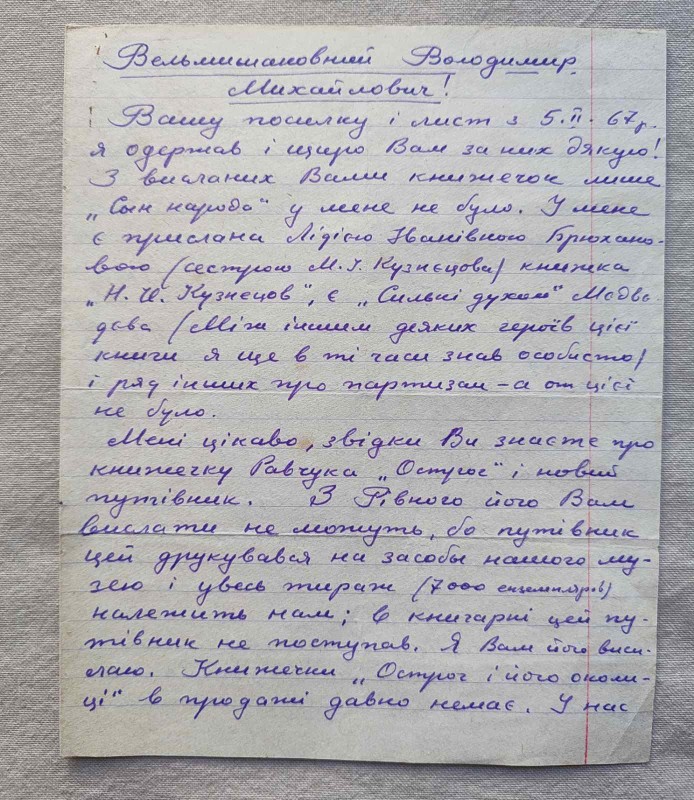 Вельмишановний Володимир
Михайлович!
Вашу посилку і лист з 5.II.67р.
я одержав і щиро Вам за них дякую!
З висланих Вами книжечок лише
„Сын народа" у мене не було. У мене
є прислана Лідією Іванівною Брюхано-
вою (сестрою М.І. Кузнєцова) книжка
„Н. И. Кузнецов", є „Сильні духом" Медвє-
дєва (Між іншим деяких героїв цієї
книги я ще в ті часи знав особисто)
і ряд інших про партизан – а от цієї
не було.
Мені цікаво, звідки Ви знаєте про
книжечку Равчука „Острог" і новий
путівник. З Рівного його Вам
вислати не можуть, бо путівник
цей друкувався на засоби нашого му-
зею і увесь тираж (7000 екземплярів)
належить нам; в книгарні цей пу-
тівник не поступав. Я Вам його виси-
лаю. Книжечки „Острог і його околи-
ці" в продажі давно немає. У нас